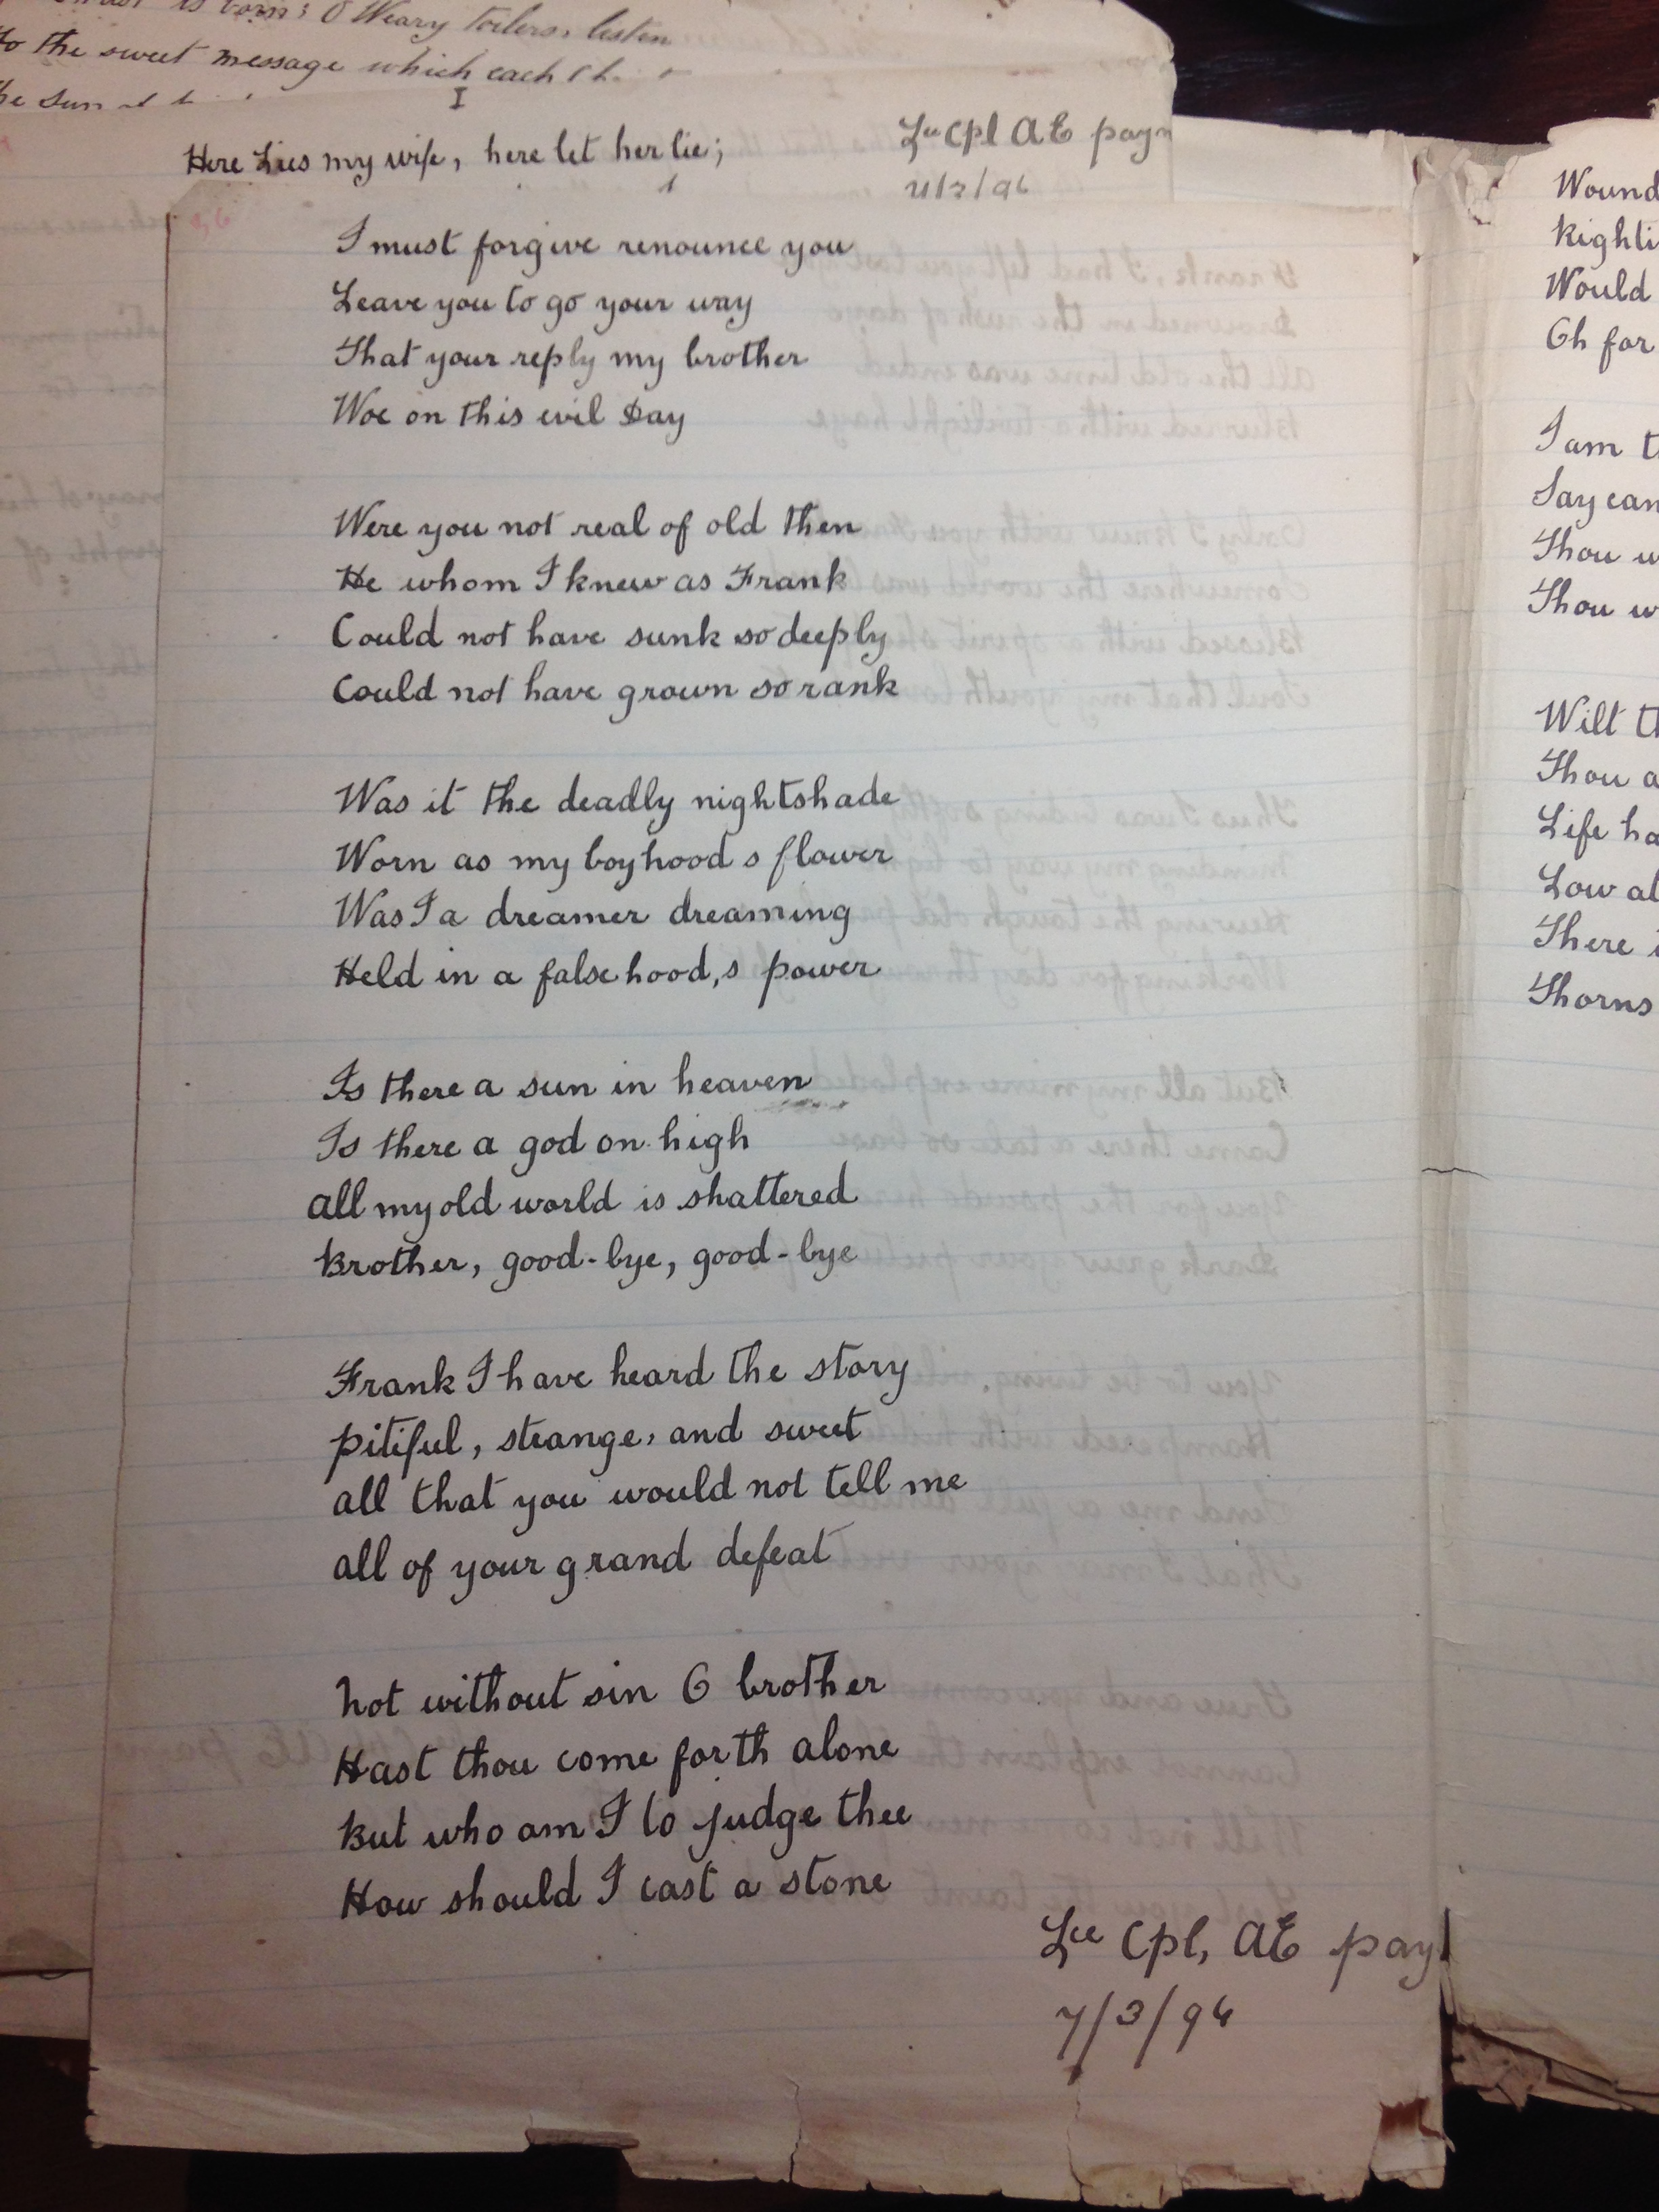 is born; O Weary toilers, listen
to the sweet message which each
the sun
I
Here Lies my wife, here let her lie;
Lce Cpl AE payn
I must forgive renounce you
Leave you to go your way
That your reply my brother
Woe on this evil Day
Were you not real of old then
He whom I knew as Frank
Could not have sunk so deeply
Could not have grown so rank
Was it the deadly nightshade
Worn as my boyhood s flower
Was I a dreamer dreaming
Held in a falsehood,s power
Is there a sun in heaven
Is there a god on high
All my old world is shattered
Brother, good-bye, good-bye
Frank I have heard the story
pitiful, strange, and sweet
all that you would not tell me
all of your grand defeat
Not without sin O brother
Hast thou come forth alone
But who am I to judge thee
How should I cast a stone
Lce Cpl, AE pay
7/3/96
Wound
Righti
Would
Oh for
I am t
Say can
Thou w
Thou w
Wilt th
Thou a
Life ha
Low at
There i
Thorns